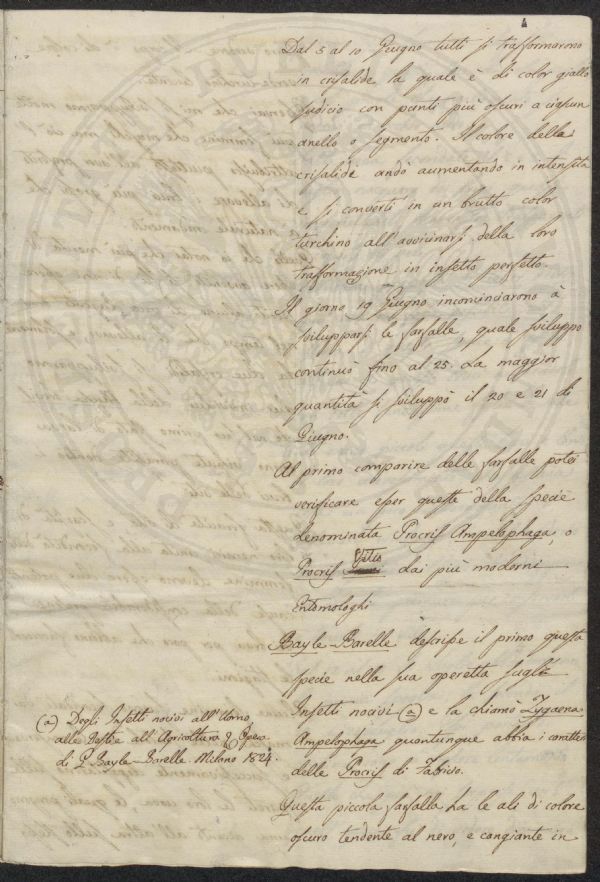 4
Dal 5 al 10 Giugno tutti si trasformarono
in crisalide la quale è di color giallo
sudicio con punti più oscuri a ciascun
anello o segmento. Il colore della
crisalide andò aumentando in intensità
e si convertì in un brutto color
turchino all'avvicinarsi della loro
trasformazione in insetto perfetto.
Il giorno 19 Giugno incominciarono à
svilupparsi le farfalle, quale sviluppo
continuò fino al 25. La maggior
quantità si sviluppò il 20 e 21 di
Giugno.
Al primo comparire delle farfalle potei
verificare esser queste della specie
denominata Procris Ampelophaga, o
Procris Vitis dai più moderni
Entomologhi
Bayle-Barelle descrisse il primo questa
specie nella sua operetta sugli
Insetti nocivi (a) e la chiamò Zygaena
Ampelophaga quantunque abbia i caratteri
delle Procris di Fabricio.
Questa piccola farfalla ha le ale di colore
oscuro tendente al nero, e cangiante in
(a) Degli Insetti nocivi all'Uomo,
alle Bestie all'Agricoltura &. Opera
di G. Bayle-Barelle. Milano 1824.